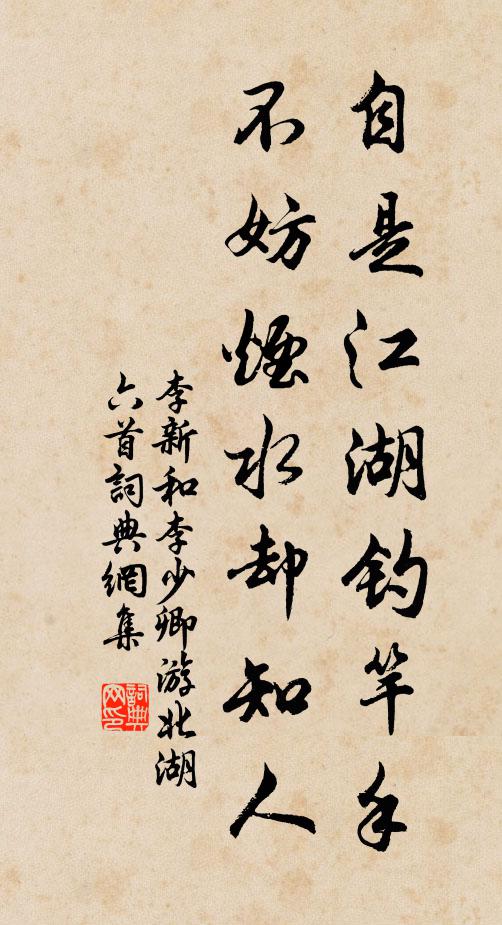 自是江湖釣竿手
不妨煙水却知人
李新和李少卿游北湖
六首詞典網集
詞典网印